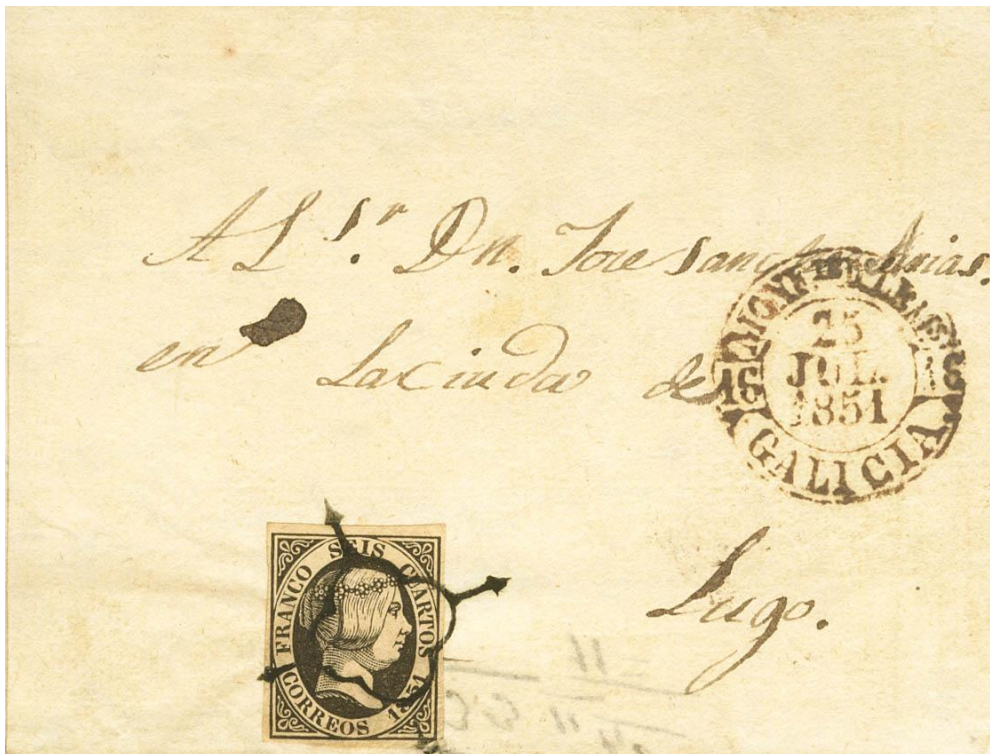 Al Sr. Dn. Jose Sanchez Arias.
en La Ciudad de
Lugo.
25
JUL.
1851
GALICIA
FRANCO SEIS CUARTOS
CORREOS 1851